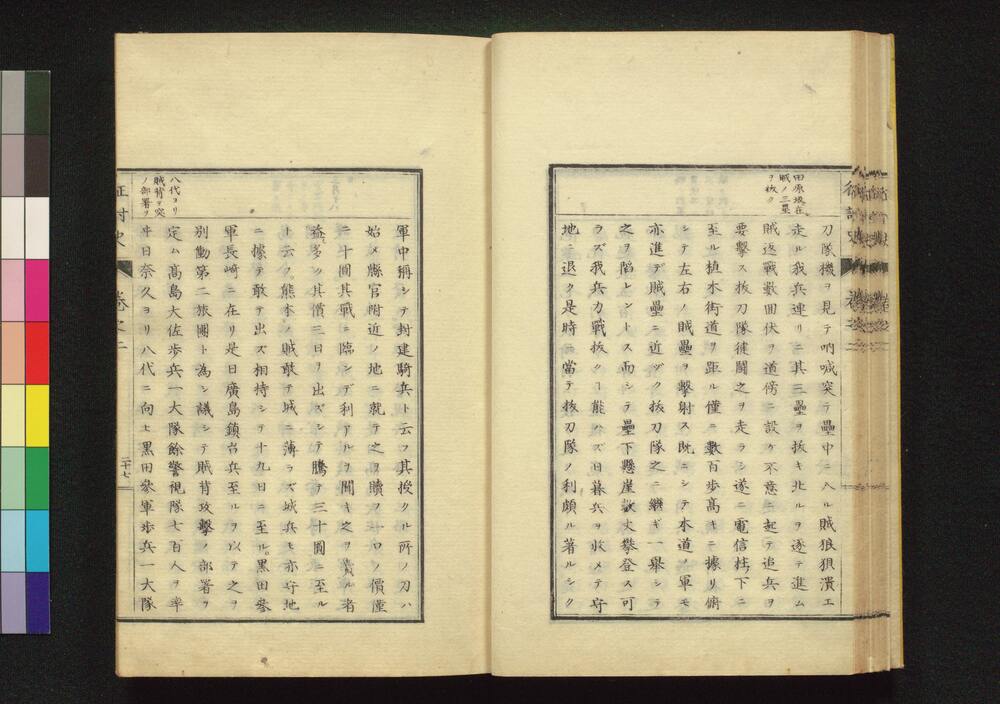 田原坂在
賊ノ三壘
ヲ抜ク
刀隊機ヲ見テ吶喊突テ壘中ニ入ル賊狼狽潰エ
走ル我兵連リニ其三壘ヲ抜キ北ルヲ逐テ進ム
賊返戰數囬伏ヲ道傍ニ設ケ不意ニ起テ追兵ヲ
要擊ス抜刀隊健鬪之ヲ走ラシ遂ニ電信柱下ニ
至ル植木街道ヲ距ル僅ニ數百歩髙キニ據リ俯
シテ左右ノ賊壘ヲ擊射ス既ニシテ本道ノ軍モ
亦進デ賊壘ニ近ヅク抜刀隊之ニ繼ギ一舉シテ
之ヲ陷レントス而シテ壘下懸崖數丈攀登ス可
ラズ我兵力戰抜クー能ハズ日暮兵ヲ收メテ守
地ニ退ク是時ニ當テ抜刀隊ノ利頗ル著ルシク
軍中稱シテ封建騎兵ト云フ其授クル所ノ刀ハ
始メ縣官附近ノ地ニ就テ之ヲ購フ一口ノ價僅
ニ二十圓其戰ニ臨ンデ利アルヲ聞キ之ヲ賣ル者
益多ク其價三日ヲ出ズシテ騰テ三十圓ニ至ル
ト云フ熊本ノ賊敢テ城ニ薄ラズ城兵モ亦守地
ニ據テ敢テ出ズ相持シテ十九日ニ至ル黒田叅
軍長崎ニ在リ是日廣島鎮台兵至ルヲ以テ之ヲ
別働第二旅團ト為シ議シテ賊背攻擊ノ部署ヲ
定ム髙島大佐歩兵一大隊餘警視隊七百人ヲ率
ヰ日奈久ヨリ八代ニ向ヒ黒田叅軍歩兵一大隊
八代ヨリ
賊背ヲ突
ノ部署ヲ
征討史
卷之二
二十七